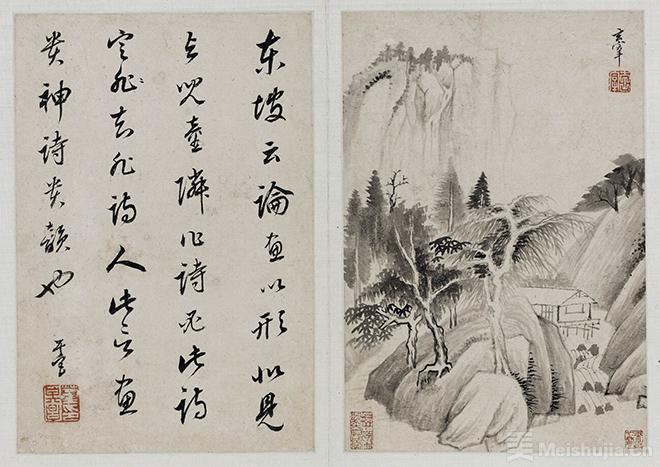 東坡云論畫以形似見
與兒童隣作詩必此詩
定非知非詩人此言畫
貴神詩貴韻也
玄宰
玄宰
美 Meishujia.cn